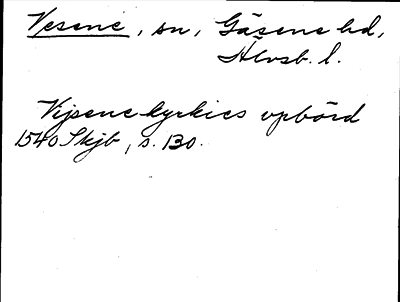 Vesene, sn, Gäsene hd,
Älvsb. l.
Vijsene kyrkies vpbörd
1540 Skjb, s. 130.